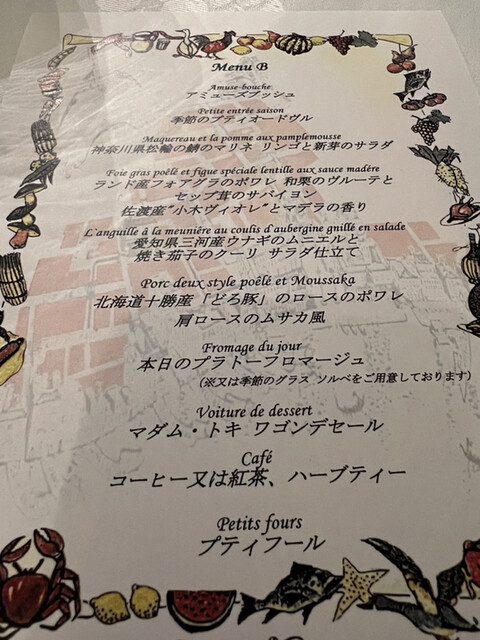 Menu B
Amuse-bouche
アミューズブッシュ
Petite entrée saison
季節のプティオードヴル
Maquereau et la pomme aux pamplemousse
神奈川県松輪の鯖のマリネ リンゴと新芽のサラダ
Foie gras poêlé et figue spéciale lentille aux sauce madère
ランド産フォアグラのポワレ 和栗のヴルーテと
セップ茸のサバイヨン
佐渡産"小木ヴィオレ"とマデラの香り
L'anguille à la meunière au coulis d'aubergine gnillé en salade
愛知県三河産ウナギのムニエルと
焼き茄子のクーリ サラダ仕立て
Porc deux style poêlé et Moussaka
北海道十勝産「どろ豚」のロースのポワレ
肩ロースのムサカ風
Fromage du jour
本日のプラトーフロマージュ
(※又は季節のグラス ソルベをご用意しております)
Voiture de dessert
マダム・トキ ワゴンデセール
Café
コーヒー又は紅茶、ハーブティー
Petits fours
プティフール